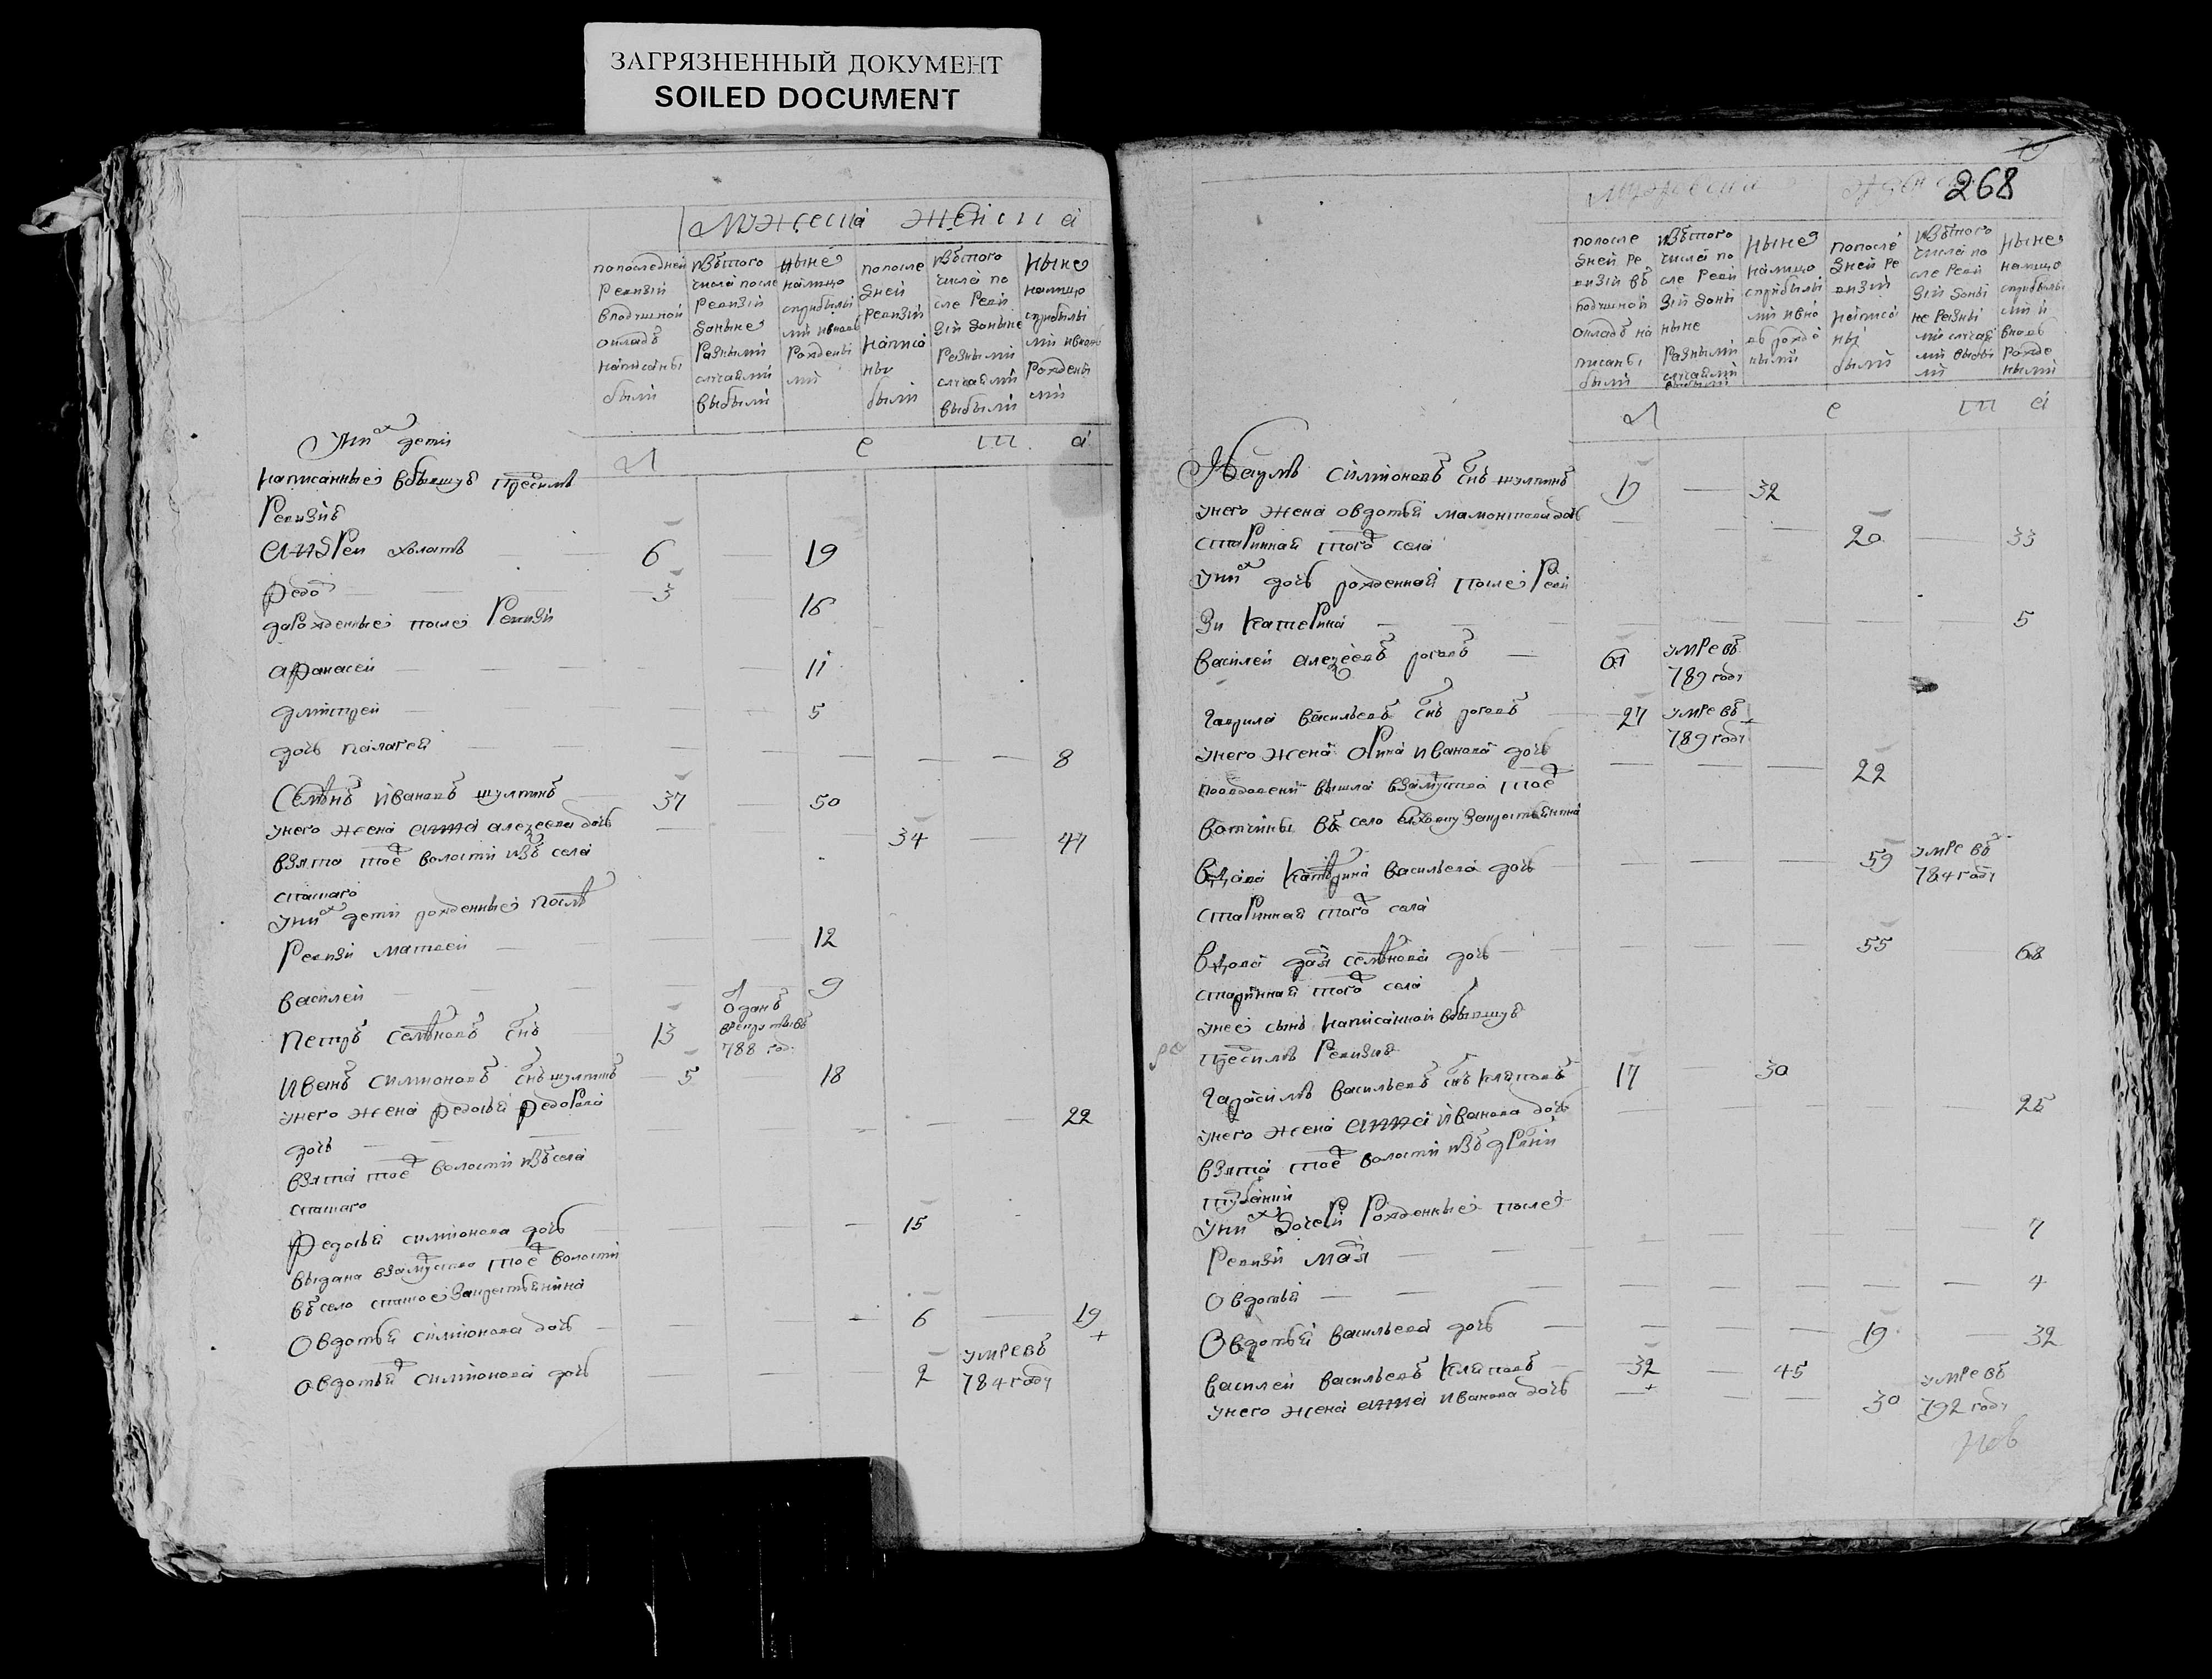 ЗАГРЯЗНЕННЫЙ ДОКУМЕНТ
SOILED DOCUMENT
Мужеска женска
попоследней
ревизии
вподушной
окладъ
написаны
были
изътого
числа после
ревизии
доныне
разными
случаями
выбыли
ныне
налицо
сприбылы
ми ивновь
рожденны
ми
попосле
дней
ревизии
написа
ны
были
изътого
числа по
сле реви
зии доныне
разными
случаями
выбыли
ныне
налицо
сприбылы
ми ивновь
рожденны
ми
Л е т а
Уних дети
написанные вбывшую пред симъ
Ревизию
андреи холатъ 6 19
Федоръ 3 16
дарожденные после Ревизии
афанасеи 11
дмитреи 5
дочь палагея 8
Семенъ ивановъ шулпинъ 37 50
унего жена анна алексеева дочь 34 47
взята тоеж волости изъ села
спаского
уних дети рожденные после
Ревизии матвеи 12
василеи 9
Петръ семеновъ снъ 13 отданъ
врекруты въ
788 году
иванъ симионовъ снъ шулпинъ 5 18
унего жена федосья федорова 22
дочь
взята тоеж волости изъ села
спаского
Федосья симионова дочь 15
выдана взамужство тоеж волости
въ село спаское закрестьянина
Овдотья симионова дочь 6 19
овдотья симионова дочь 2 умре въ
784 году
268
попосле
дней ре
визии въ
подушной
окладъ на
писаны
были
изътого
числа по
сле реви
зии доны
ныне
разными
случаями
выбыли
ныне
налицо
сприбылы
ми ивно
въ рожде
ными
попосле
дней ре
визии
написа
ны
были
изътого
числа по
сле реви
зии доны
не разны
ми случая
ми выбы
ли
ныне
налицо
сприбылы
ми и
вновь
рожде
ными
Л е т а
Наумъ симионовъ снъ шулпинъ 19 32
унего жена овдотья мамонтова дочь
старинная тогож села 20 33
уних дочь рожденная после Реви
зи катерина 5
василеи алексеевъ роговъ 61 умре въ
789 году
гаврила васильевъ снъ роговъ 27 умре въ
789 году
унего жена орина иванова дочь 22
повдовении вышла взамужство тоеж
вотчины въ село закрестьянина
вдова катерина васильева дочь 59 умре въ
784 году
старинная тогож села
вдова даря семенова дочь 55 68
старинная тогож села
унее сынъ написанной вбывшую
пред симъ Ревизию
гарасимъ васильевъ снъ 17 30
унего жена анна иванова дочь 25
взята тоеж волости изъ дрвни
уних дочери рожденные после
Ревизии маря 7
Овдотья 4
Овдотья васильева дочь 19 32
василеи васильевъ 32 45
унего жена анна иванова дочь 30 умре въ
792 году